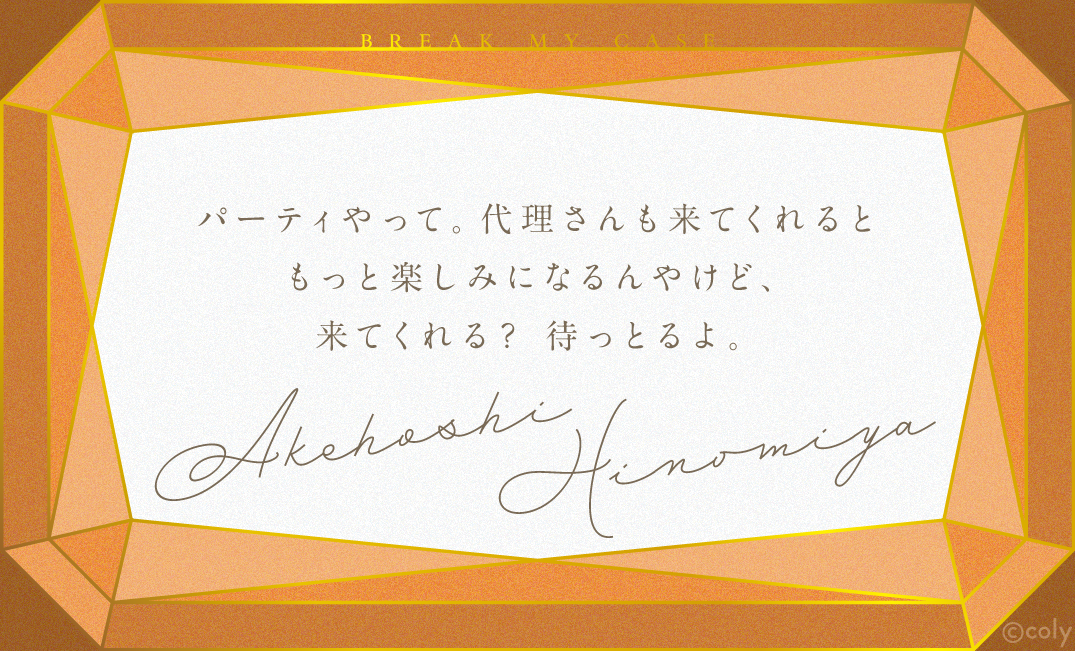 BREAK MY CASE
パーティやって。代理さんも来てくれると
もっと楽しみになるんやけど、
来てくれる？ 待っとるよ。
Akehoshi
Hinomiya
©coly